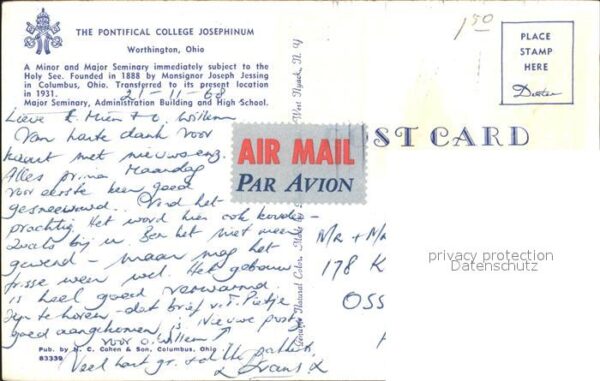 THE PONTIFICAL COLLEGE JOSEPHINUM
Worthington, Ohio
A Minor and Major Seminary immediately subject to the
Holy See. Founded in 1888 by Monsignor Joseph Jessing
in Columbus, Ohio. Transferred to its present location
in 1931.
Major Seminary, Administration Building and High School.
21-11-68
Lieve t. Mien + o. Willem
Van harte dank voor
kaart met nieuws enz.
Alles prima. Maandag
voor eerste keer goed
gesneeuwd. Vond het
prachtig. Het word hier ook kouder
zoals bij u. Ben het niet meer
gewend – maar mag het
frisse weer wel. Het gebouw
is heel goed verwarmd.
Fijn te horen – dat brief v. t. Pietje
goed aangekomen is. Nieuwe postz.
voor o. Willem
Veel hart. gr. + tot
Frans
Pub. by H. C. Cohen & Son, Columbus, Ohio
83339
West Nyack, N. Y.
Natural Color
AIR MAIL
PAR AVION
POST CARD
150
PLACE
STAMP
HERE
Mr + Mr
178 K
OSS
privacy protection
Datenschutz